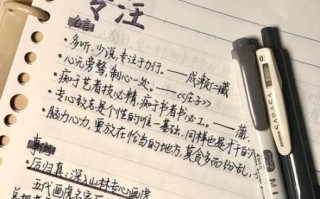 专注
名言:
• 多听,少说,专注于力行。——成濑仁藏
• 心无旁骛,制心一处。——《庄子》
• 痴于艺者技必精,痴于书者书必工。——蒲
• 专心致志是个性的唯一基础,同样也是才干的
• 脑力心力,要放在恰当的地方,莫贪多而纷乱,
事例:
• 厉归真:深入山林专心画虎
五代画虎名家厉